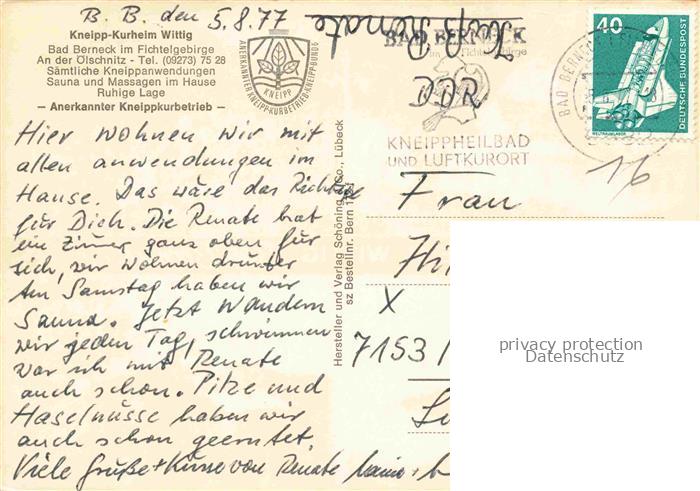 B. B. den 5.8.77
Kneipp-Kurheim Wittig
Bad Berneck im Fichtelgebirge
An der Ölschnitz - Tel. (09273) 75 28
Sämtliche Kneippanwendungen
Sauna und Massagen im Hause
Ruhige Lage
— Anerkannter Kneippkurbetrieb —
ANERKANNTER KNEIPPKURBETRIEB KNEIPPBUND
KNEIPP
Hier wohnen wir mit
allen anwendungen im
Hause. Das wäre das Richtige
für Dich. Die Renate hat
ein Zimmer ganz oben für
sich, wir wohnen drunter
Am Samstag haben wir
Sauna. Jetzt wandern
wir jeden Tag, schwimmen
war ich mit Renate
auch schon. Pilze und
Haselnüsse haben wir
auch schon geerntet.
Viele Grüße + Küsse von Renate
Hersteller und Verlag Schöning & Co., Lübeck
sz Bestellnr. Bern
Renate
BAD BERNECK
im Fichtelgebirge
KNEIPPHEILBAD
UND LUFTKURORT
DDR
BAD BERNECK
40
DEUTSCHE BUNDESPOST
WELTRAUMLABOR
16
Frau
X
7153
privacy protection
Datenschutz